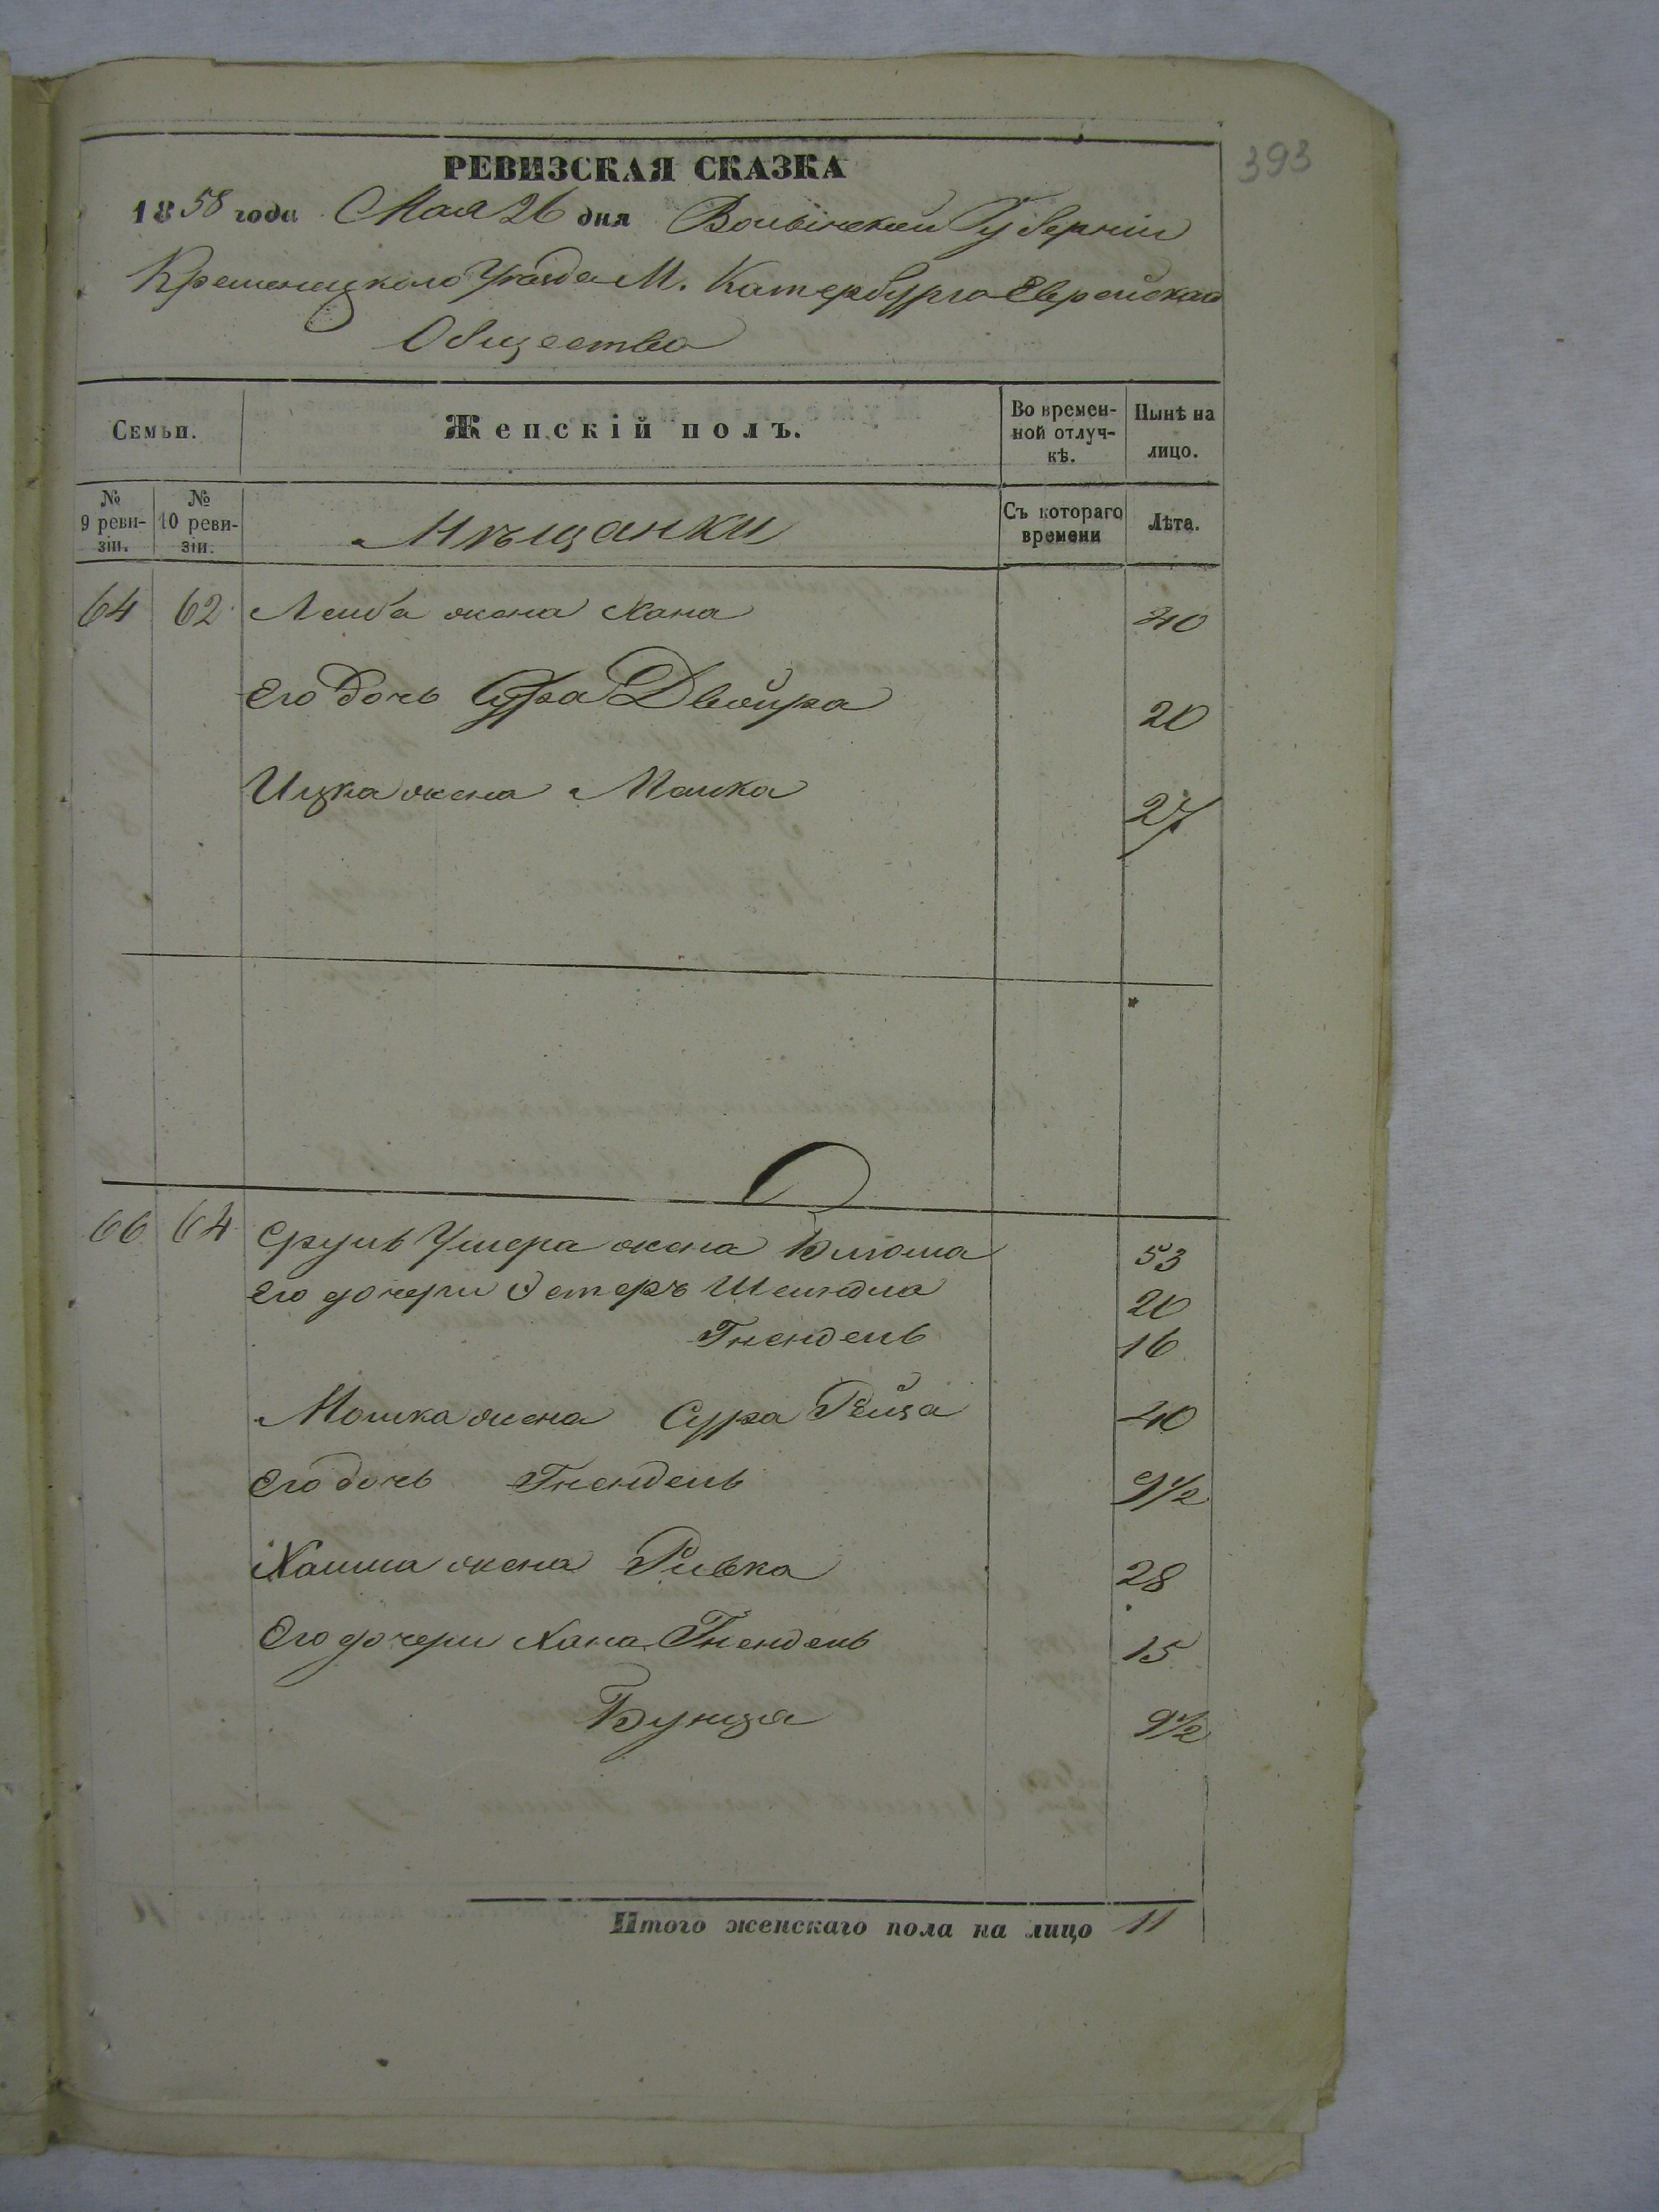 393
РЕВИЗСКАЯ СКАЗКА
1858 года Мая 26 дня Волынской Губерніи
Кременецкого Уѣзда М. Катербурга Еврейскаго
Общества
Семьи. Женскій полъ. Во времен- Нынѣ на
ной отлуч- лицо.
кѣ.
№ № Мѣщанки Съ котораго Лѣта.
9 реви- 10 реви- времени
зіи. зіи.
64 62 Лейба жена Хана 40
Его дочь Сура Двойра 20
Ицка жена Малка 27
66 64 Сруль Ушера жена Блюма 53
Его дочери Эстеръ Шейндла 20
Гнендель 16
Мошка жена Сура Рейза 40
Его дочь Гнендель 9½
Хаима жена Ривка 28
Его дочери Хана Гнендель 15
Бунця 9½
Итого женскаго пола на лицо 11